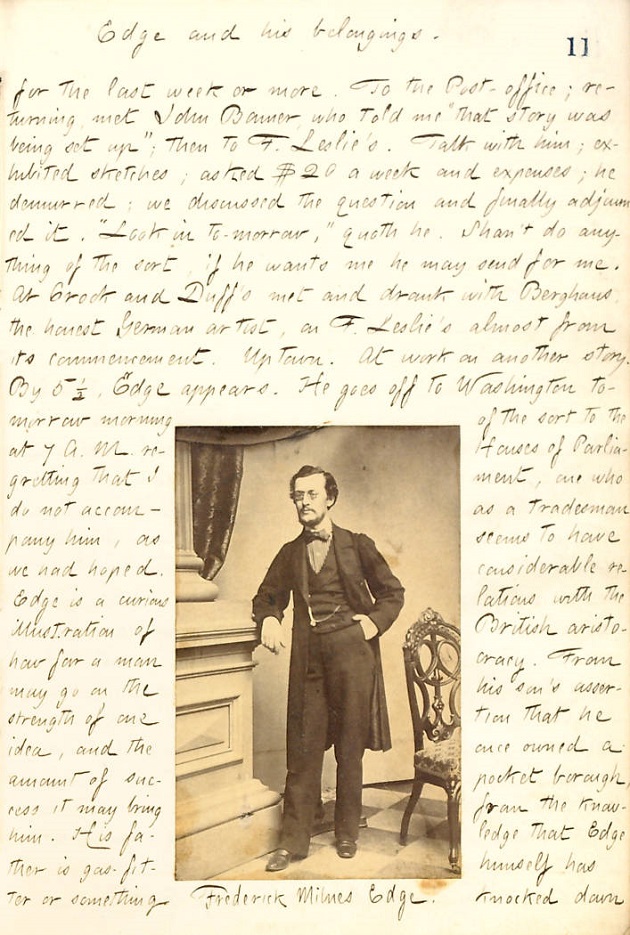 Edge and his belongings.
11
for the last week or more. To the Post-office; re-
turning, met John Bonner, who told me "that story was
being set up"; then to F. Leslie's. Talk with him; ex-
hibited sketches; asked $20 a week and expenses; he
demurred; we discussed the question and finally adjourn
ed it. "Look in to-morrow," quoth he. Shan't do any-
thing of the sort, if he wants me he may send for me.
At Crook and Duff's met and drank with Berghaus,
the honest German artist, on F. Leslie's almost from
its commencement. Uptown. At work on another story.
By 5 ½, Edge appears. He goes off to Washington to-
morrow morning
at 7 A. M. re-
gretting that I
do not accom-
pany him, as
we had hoped.
Edge is a curious
illustration of
how far a man
may go on the
strength of one
idea, and the
amount of suc-
cess it may bring
him. His fa-
ther is gas-fit-
ter or something
of the sort to the
Houses of Parlia-
ment, one who
as a tradesman
seems to have
considerable re
lations with the
British aristo-
cracy. From
his son's asser-
tion that he
once owned a
pocket borough,
from the know-
ledge that Edge
himself has
knocked down
Frederick Milnes Edge.